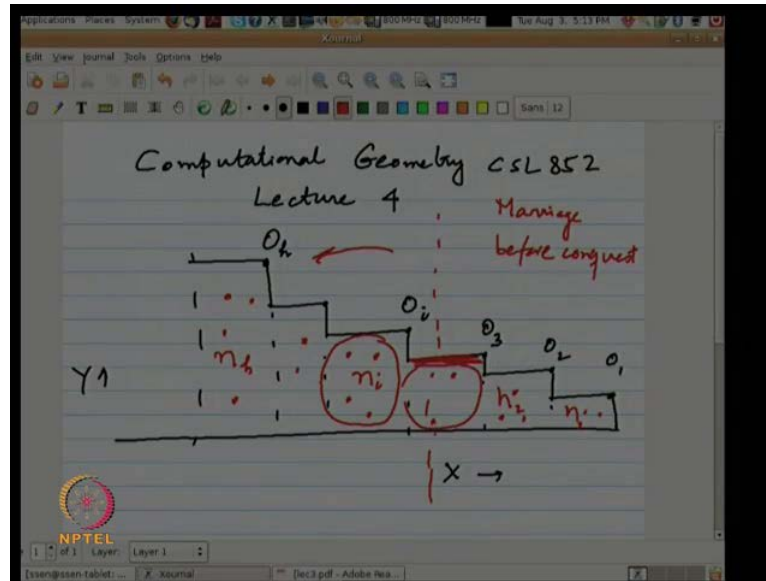 Applications Places System 800 MHz 800 MHz Tue Aug 3, 5:13 PM
Xournal
Edit View Journal Tools Options Help
T Sans 12
Computational Geometry CSL 852
Lecture 4
Marriage
before conquest
O_h
O_i
O_3
O_2
O_1
Y↑
n_h
n_i
n_2
n_1
X →
NPTEL
1 of 1 Layer: Layer 1
[ssen@ssen-tablet: ... Xournal [lec3.pdf - Adobe Rea...